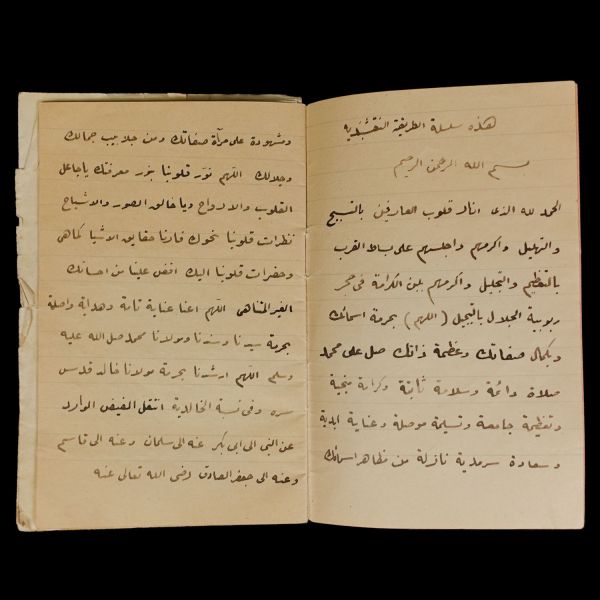 هذه سلسلة الطريقة النقشبندية
بسم الله الرحمن الرحيم
الحمد لله الذى انار قلوب العارفين بالتسبيح
والتهليل واكرمهم واجلسهم على بساط القرب
بالتعظيم والتبجيل واكرمهم بلبن الكرامة فى حجر
ربوبية الجلال بالتبجيل (اللهم) بحرمة اسمائك
وبكمال صفاتك وعظمة ذاتك صل على محمد
صلاة دائمة وسلامة ثابتة وكرامة منجية
وتعظيمة جامعة وتسليمة موصلة وعناية ابدية
وسعادة سرمدية نازلة من مظاهر اسمائك
ومشهودة على مرآة صفاتك ومن جلابيب جمالك
وجلالك اللهم نور قلوبنا بنور معرفتك ياجاعل
القلوب والارواح وياخالق الصور والاشباح
نظرات قلوبنا نحوك فارنا حقايق الاشيا كماهى
وحضرات قلوبنا اليك افض علينا من احسانك
الغير المتناهى اللهم اعنا عناية تامة وهداية واصلة
بحرمة سيدنا وسندنا ومولانا محمد صل الله عليه
وسلم اللهم ارشدنا بحرمة مولانا خالد قدس
سره وفى نسبة الخالدية انتقل الفيض الوارد
عن النبى الى ابى بكر عنه الى سلمان وعنه الى قاسم
وعنه الى جعفر الصادق رضى الله تعالى عنه